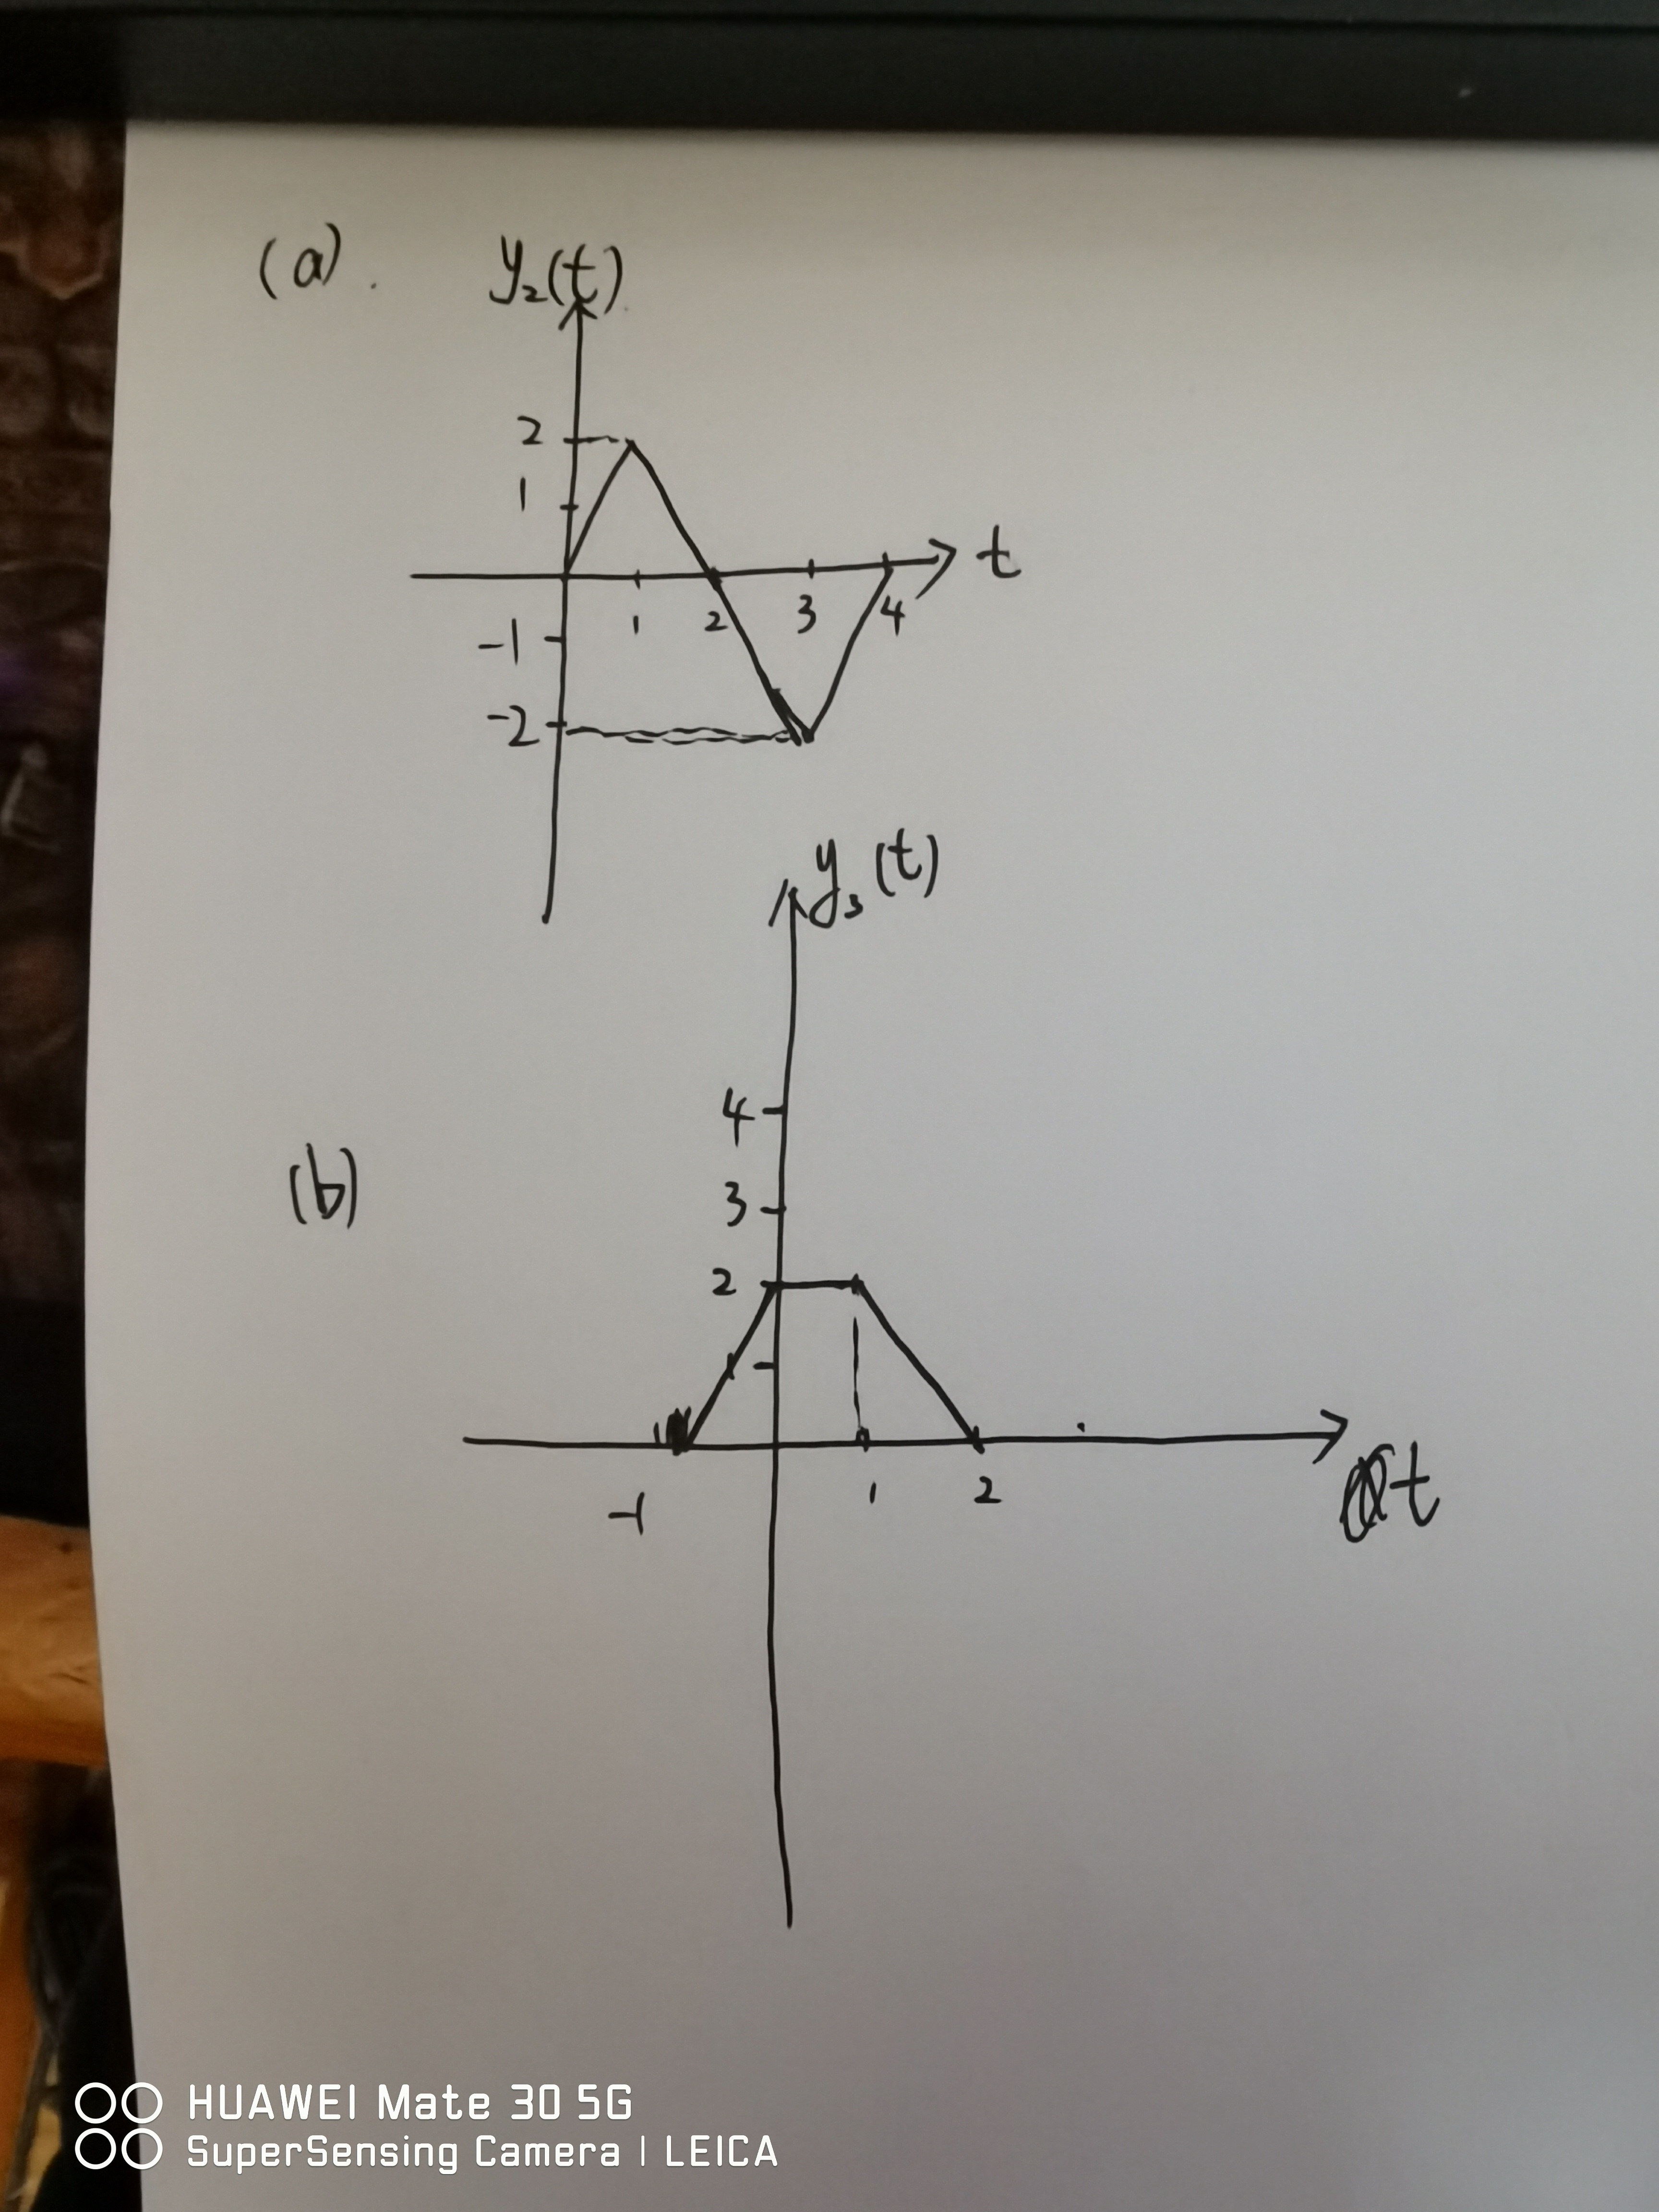 (a). y₂(t)
2
1
t
1 2 3 4
-1
-2
y₃(t)
4
(b)
3
2
-1 1 2 t
HUAWEI Mate 30 5G
SuperSensing Camera | LEICA